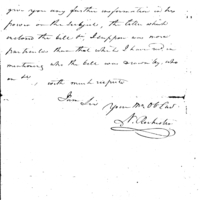 give you any further information in my
power on the subject, the letter which
enclosed the bill &, I suppose was more
particular than that which I have had in
mentioning who the bill was drawn by, also
on &c, with much respect
I am Sir your Mo Ob Sert
N. Rochester